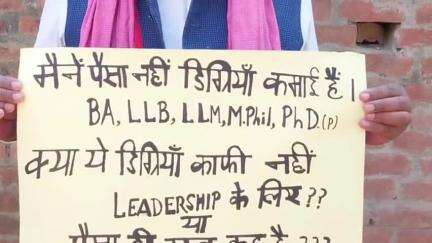 मैनें पैसा नहीं डिग्रियाँ कमाई हैं।
BA, LLB, LLM, M.Phil, PhD.(P)
क्या ये डिग्रियाँ काफी नहीं
LEADERSHIP के लिए ??
या
पैसा ही सब कुछ है ???